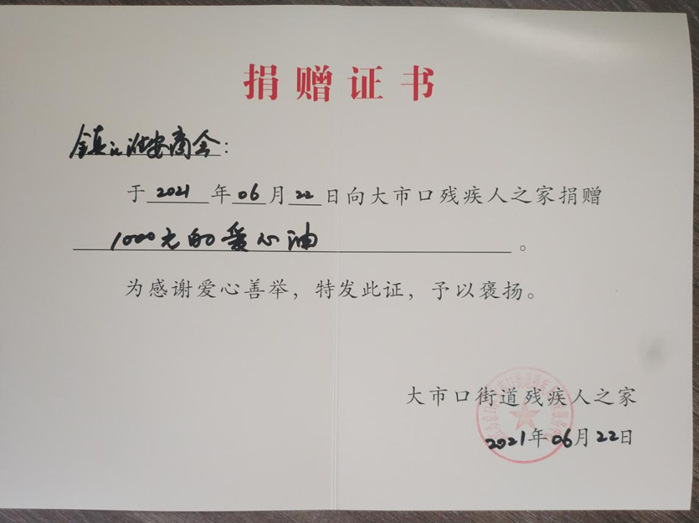 捐赠证书
镇江淮安商会：
于2021年06月22日向大市口残疾人之家捐赠
1000元的爱心油。
为感谢爱心善举，特发此证，予以褒扬。
大市口街道残疾人之家
2021年06月22日